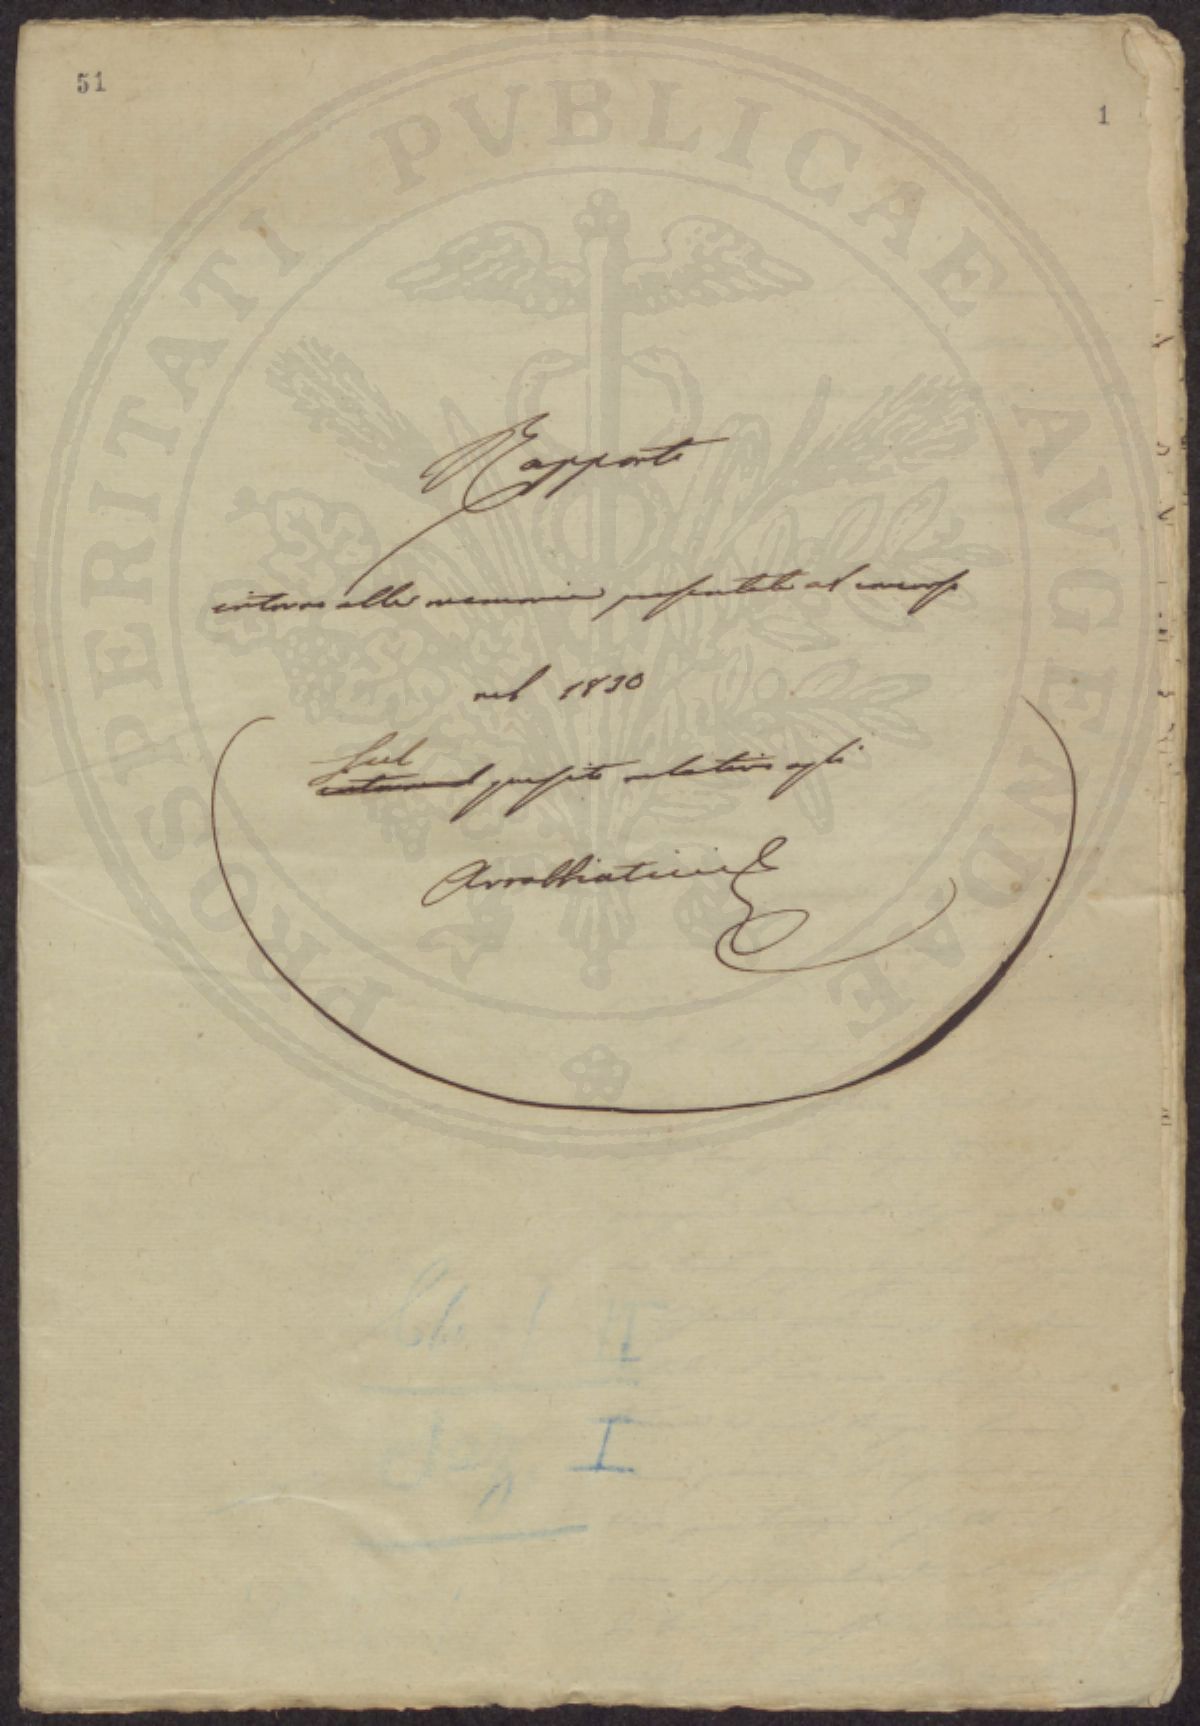 51
1
PROSPERITATI PVBLICAE AVGENDAE
Rapporto
intorno alle memorie presentate al concorso
nel 1830
sul
intorno al quesito relativo agli
Arrabbiaticci
I